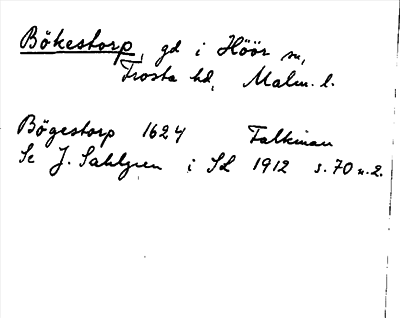 Bökestorp, gd i Höör sn,
Frosta hd, Malm. l.
Bögestorp 1624 Falkman
Se J. Sahlgren i SL 1912 s. 70 n. 2.